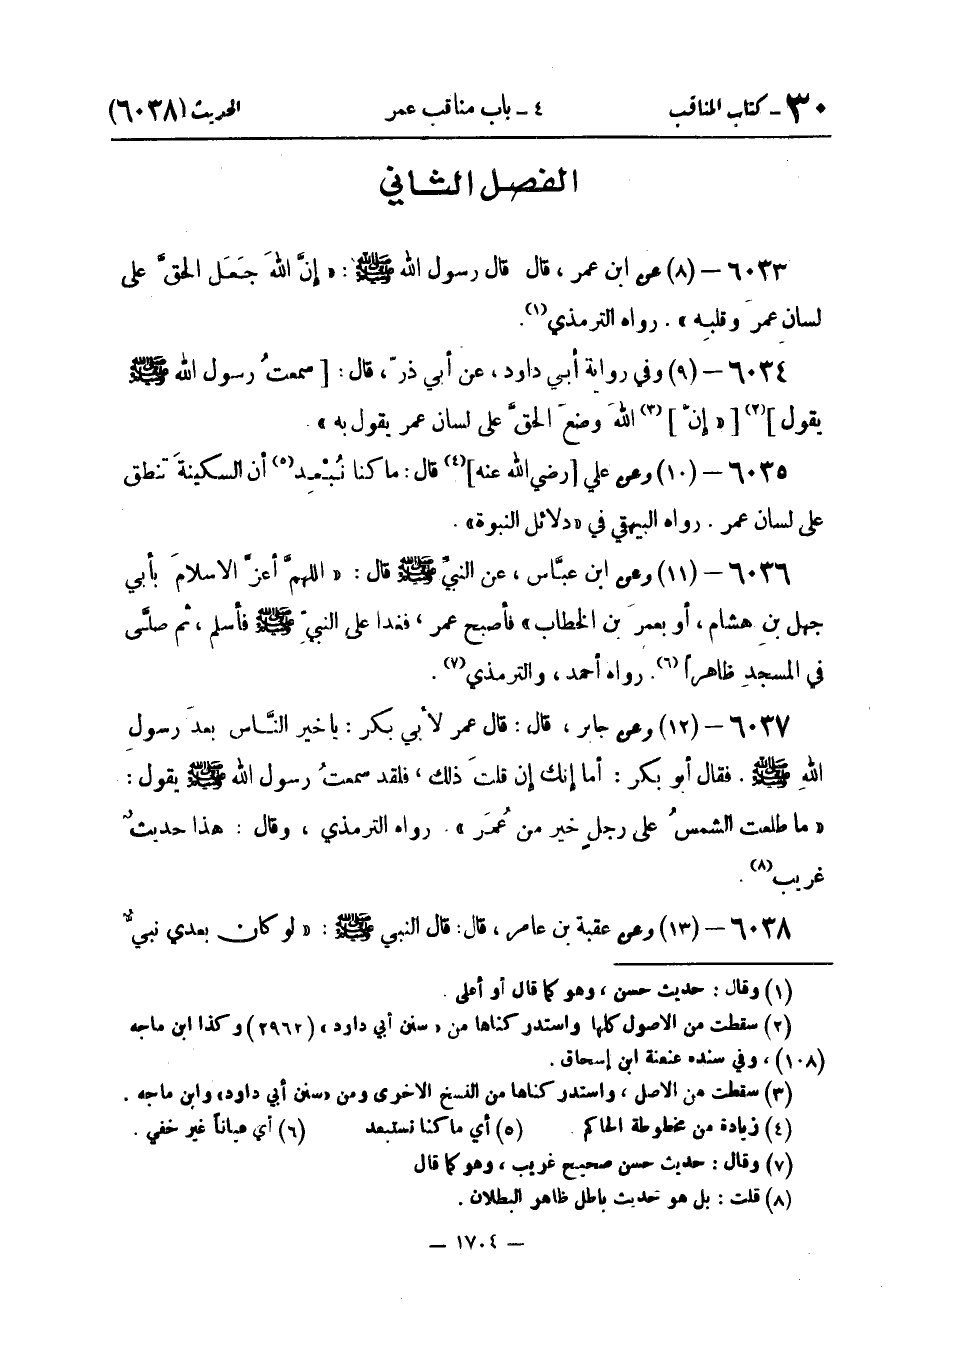 ٣٠ - كتاب المناقب ٤ - باب مناقب عمر الحديث (٦٠٣٨)
الفصل الثاني
٦٠٣٣ – (٨) عن ابن عمر ، قال قال رسول الله ﷺ : « إنَّ اللهَ جَعَل الحقَّ على
لسانِ عمرَ وقلبِه » . رواه الترمذي(١).
٦٠٣٤ – (٩) وفي رواية أبي داود ، عن أبي ذرّ ، قال : [ سمعتُ رسول الله ﷺ
يقول ](٢) [ « إنّ ](٣) اللهَ وضعَ الحقَّ على لسان عمر يقول به » .
٦٠٣٥ – (١٠) وعن علي [رضي الله عنه](٤) قال : ما كنا نُبْعِد(٥) أن السكينةَ تنطق
على لسان عمر . رواه البيهقي في «دلائل النبوة» .
٦٠٣٦ – (١١) وعن ابن عبَّاس ، عن النبيِّ ﷺ قال : « اللهمَّ أعزَّ الاسلامَ بأبي
جهل بنِ هشام ، أو بعمرَ بن الخطاب » فأصبح عمر ، فغدا على النبيِّ ﷺ فأسلم ، ثم صلَّى
في المسجدِ ظاهراً (٦). رواه أحمد ، والترمذي(٧) .
٦٠٣٧ – (١٢) وعن جابر ، قال : قال عمر لأبي بكر : يا خير النَّاس بعدَ رسولِ
اللهِ ﷺ . فقال أبو بكر : أما إنك إن قلتَ ذلك ، فلقد سمعتُ رسول الله ﷺ يقول :
« ما طلعت الشمسُ على رجلٍ خير من عُمَر » . رواه الترمذي ، وقال : هذا حديثٌ
غريب(٨) .
٦٠٣٨ – (١٣) وعن عقبة بن عامر ، قال : قال النبي ﷺ : « لو كان بعدي نبيٌّ
(١) وقال : حديث حسن ، وهو كما قال أو أعلى .
(٢) سقطت من الاصول كلها واستدركناها من « سنن أبي داود » (٢٩٦٢) وكذا ابن ماجه
(١٠٨) ، وفي سنده عنعنة ابن إسحاق .
(٣) سقطت من الاصل ، واستدركناها من النسخ الاخرى ومن «سنن أبي داود» وابن ماجه .
(٤) زيادة من مخطوطة الحاكم . (٥) أي ما كنا نستبعد (٦) أي عياناً غير خفي .
(٧) وقال : حديث حسن صحيح غريب ، وهو كما قال
(٨) قلت : بل هو حديث باطل ظاهر البطلان .
– ١٧٠٤ –